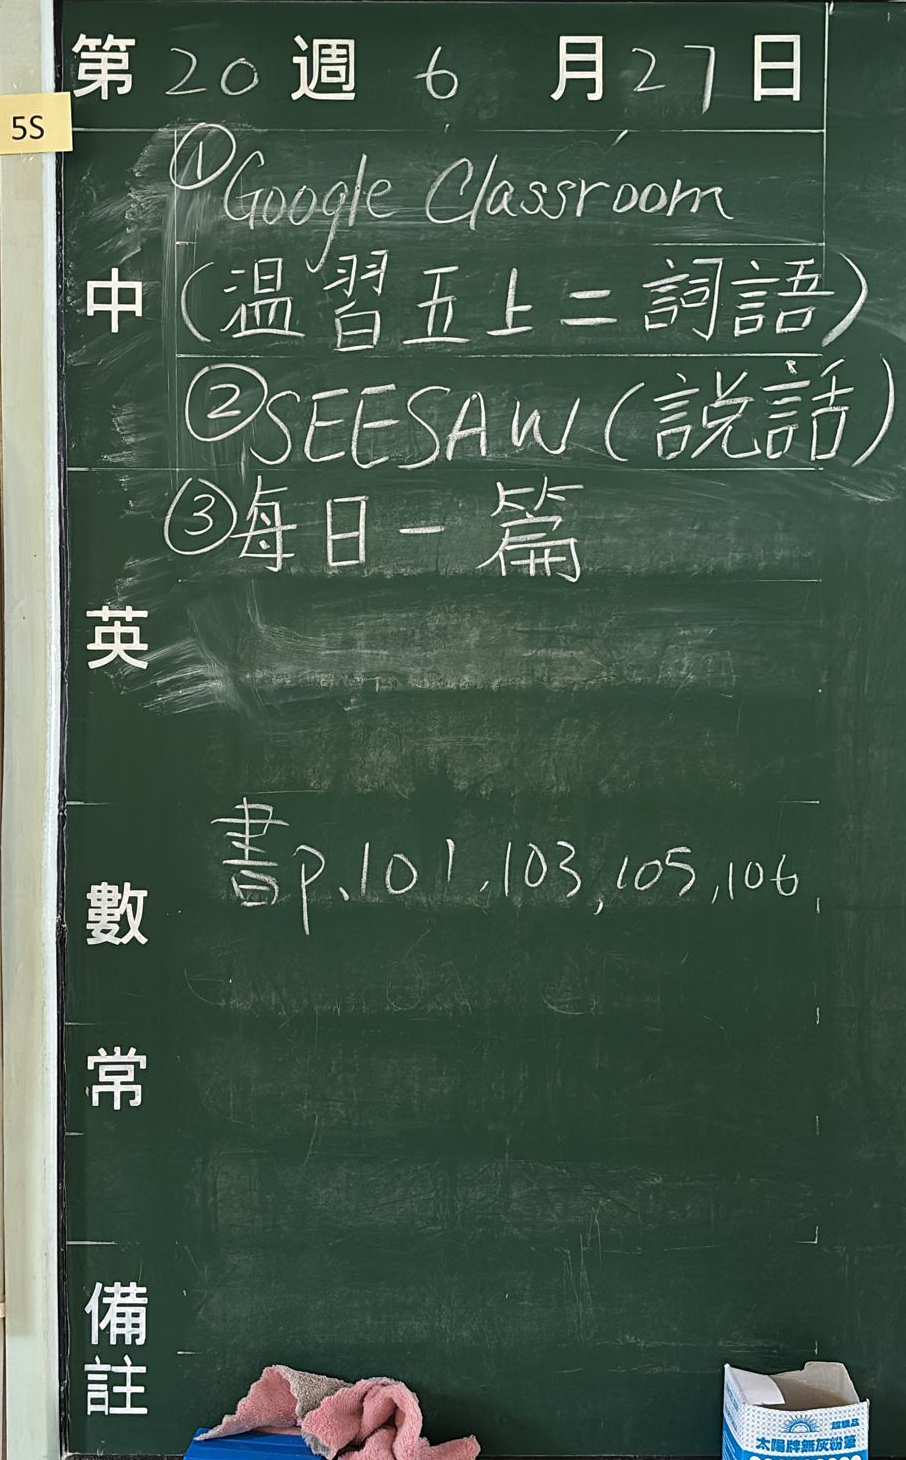 第20週 6月27日
5S
① Google Classroom
中
(溫習五上二詞語)
② SEESAW (說話)
③ 每日一篇
英
書p.101,103,105,106
數
常
備註
太陽牌無灰粉筆